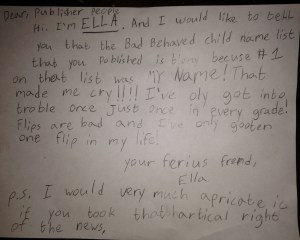 Dear, Publisher People
Hi. I'm ELLA. And I would like to tekll
you that the Bad Behaved child name list
that you poblished is blony becuse #1
on that list was My Name! That
made me cry!!!! I've oly got into
troble once Just once in every grade!
Flips are bad and I've only gooten
one flip in my life!
your ferius frend,
Ella
p.s. I would very much apricate ic
if you took that hartical right
of the news,